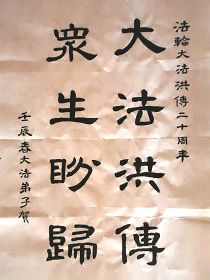 法輪大法洪傳二十周年
大法洪傳
眾生盼歸
壬辰春大法弟子賀